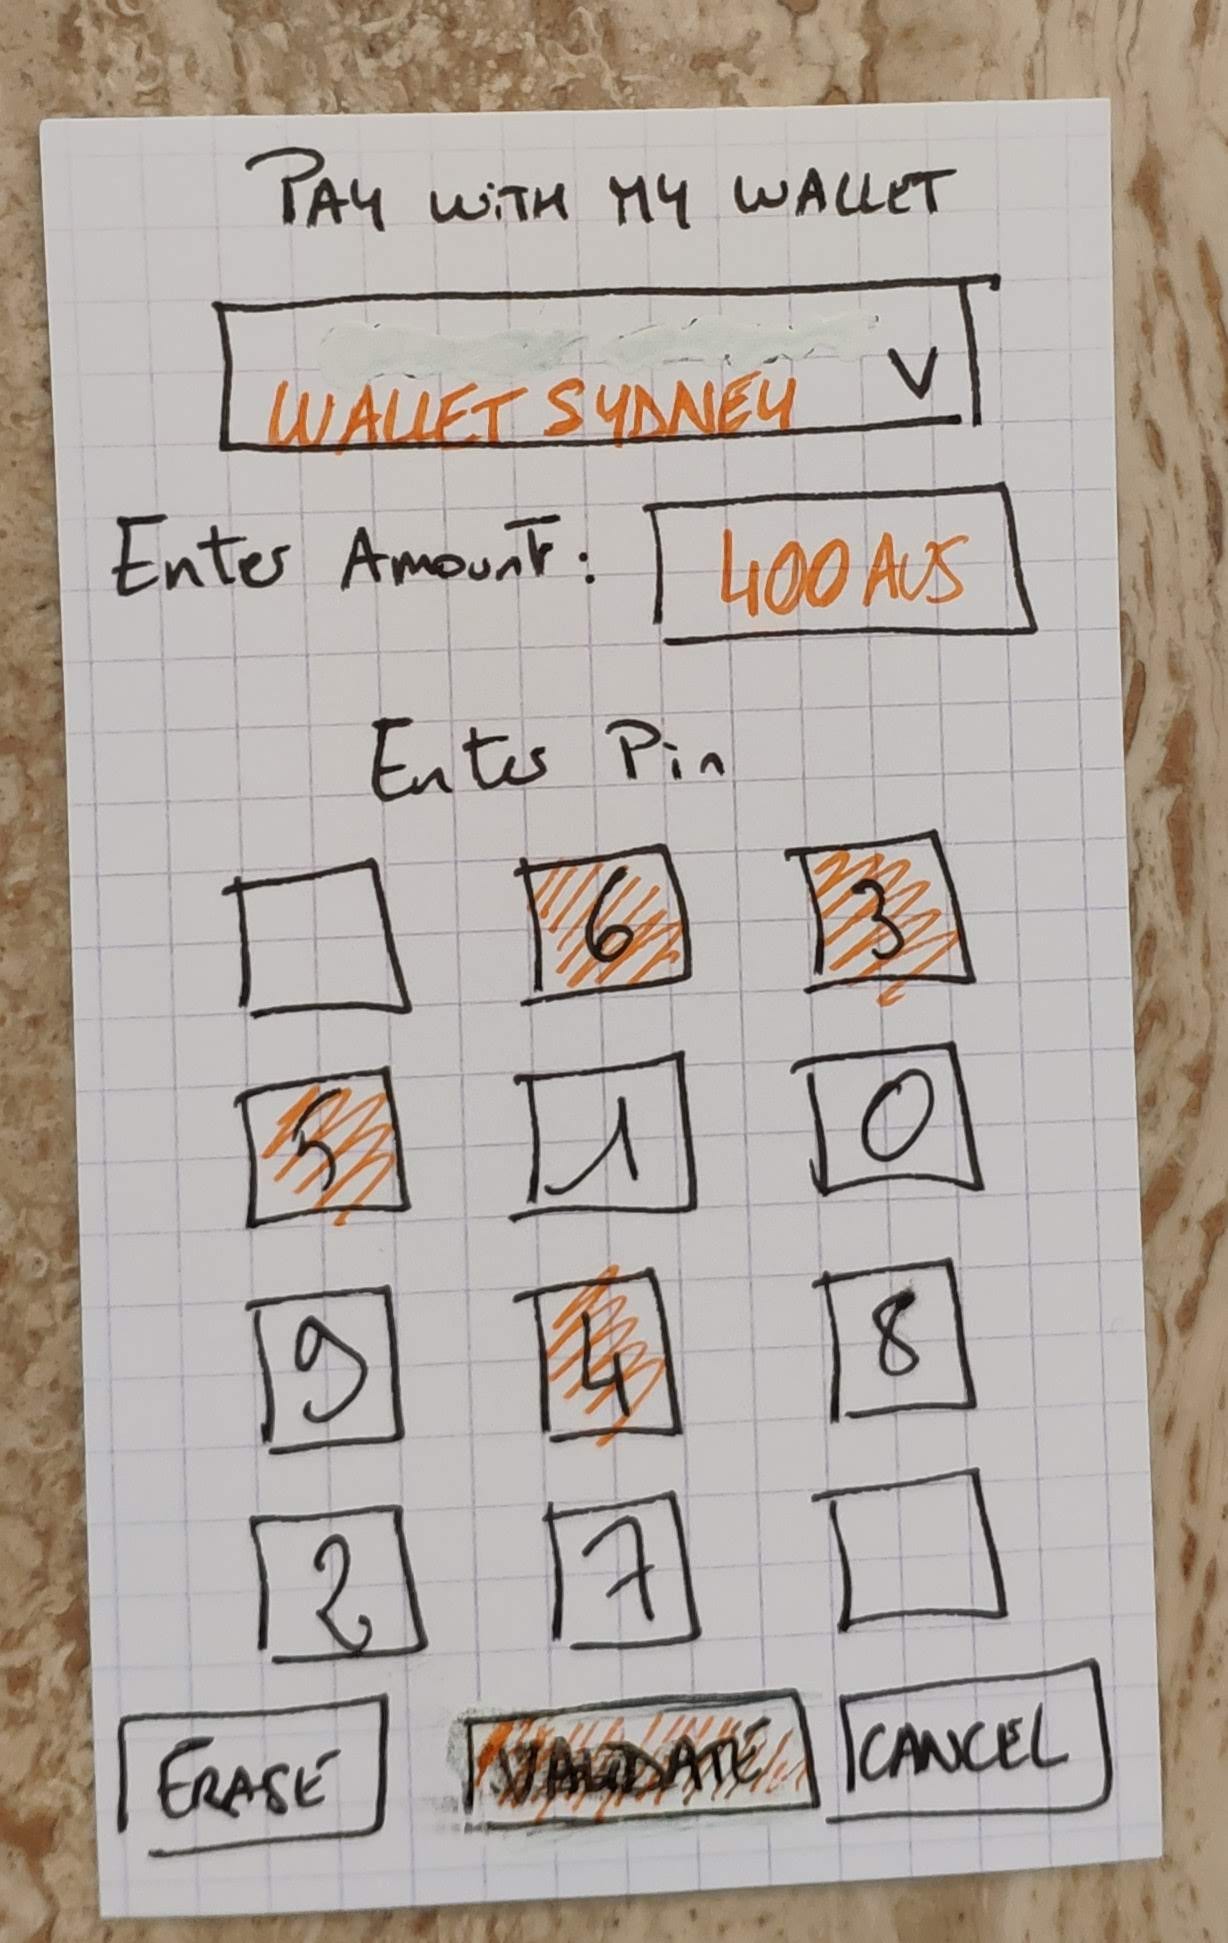 PAY WITH MY WALLET
WALLET SYDNEY V
Enter Amount: 400 AUS
Enter Pin
6 3
5 1 0
9 4 8
2 7
ERASE VALIDATE CANCEL